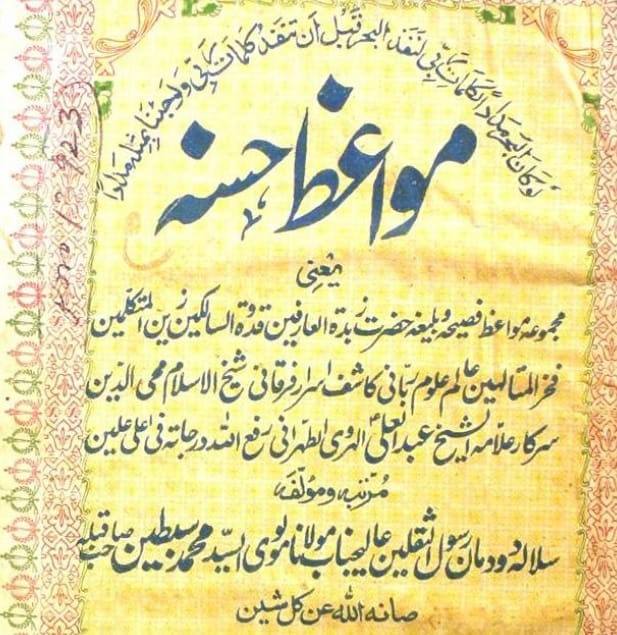 لوکان البحر مدادا لکلمات ربی لنفد البحر قبل ان تنفد کلمات ربی ولو جئنا بمثله مددا
مواعظ حسنه
یعنی
مجموعه مواعظ فصیحه و بلیغه حضرت زبدة العارفین قدوة السالکین زین المتکلمین
فخر المتالهین عالم علوم ربانی کاشف اسرار فرقانی شیخ الاسلام محی الدین
سرکار علامه الشیخ عبد العلی الہروی الطہرانی رفع اللہ درجاته فی اعلی علیین
مرتبه و مؤلفه
سلاله دودمان رسول الثقلین عالیجناب مولانا مولوی السید محمد سبطین صاحب قبله
صانه اللہ عن کل شین